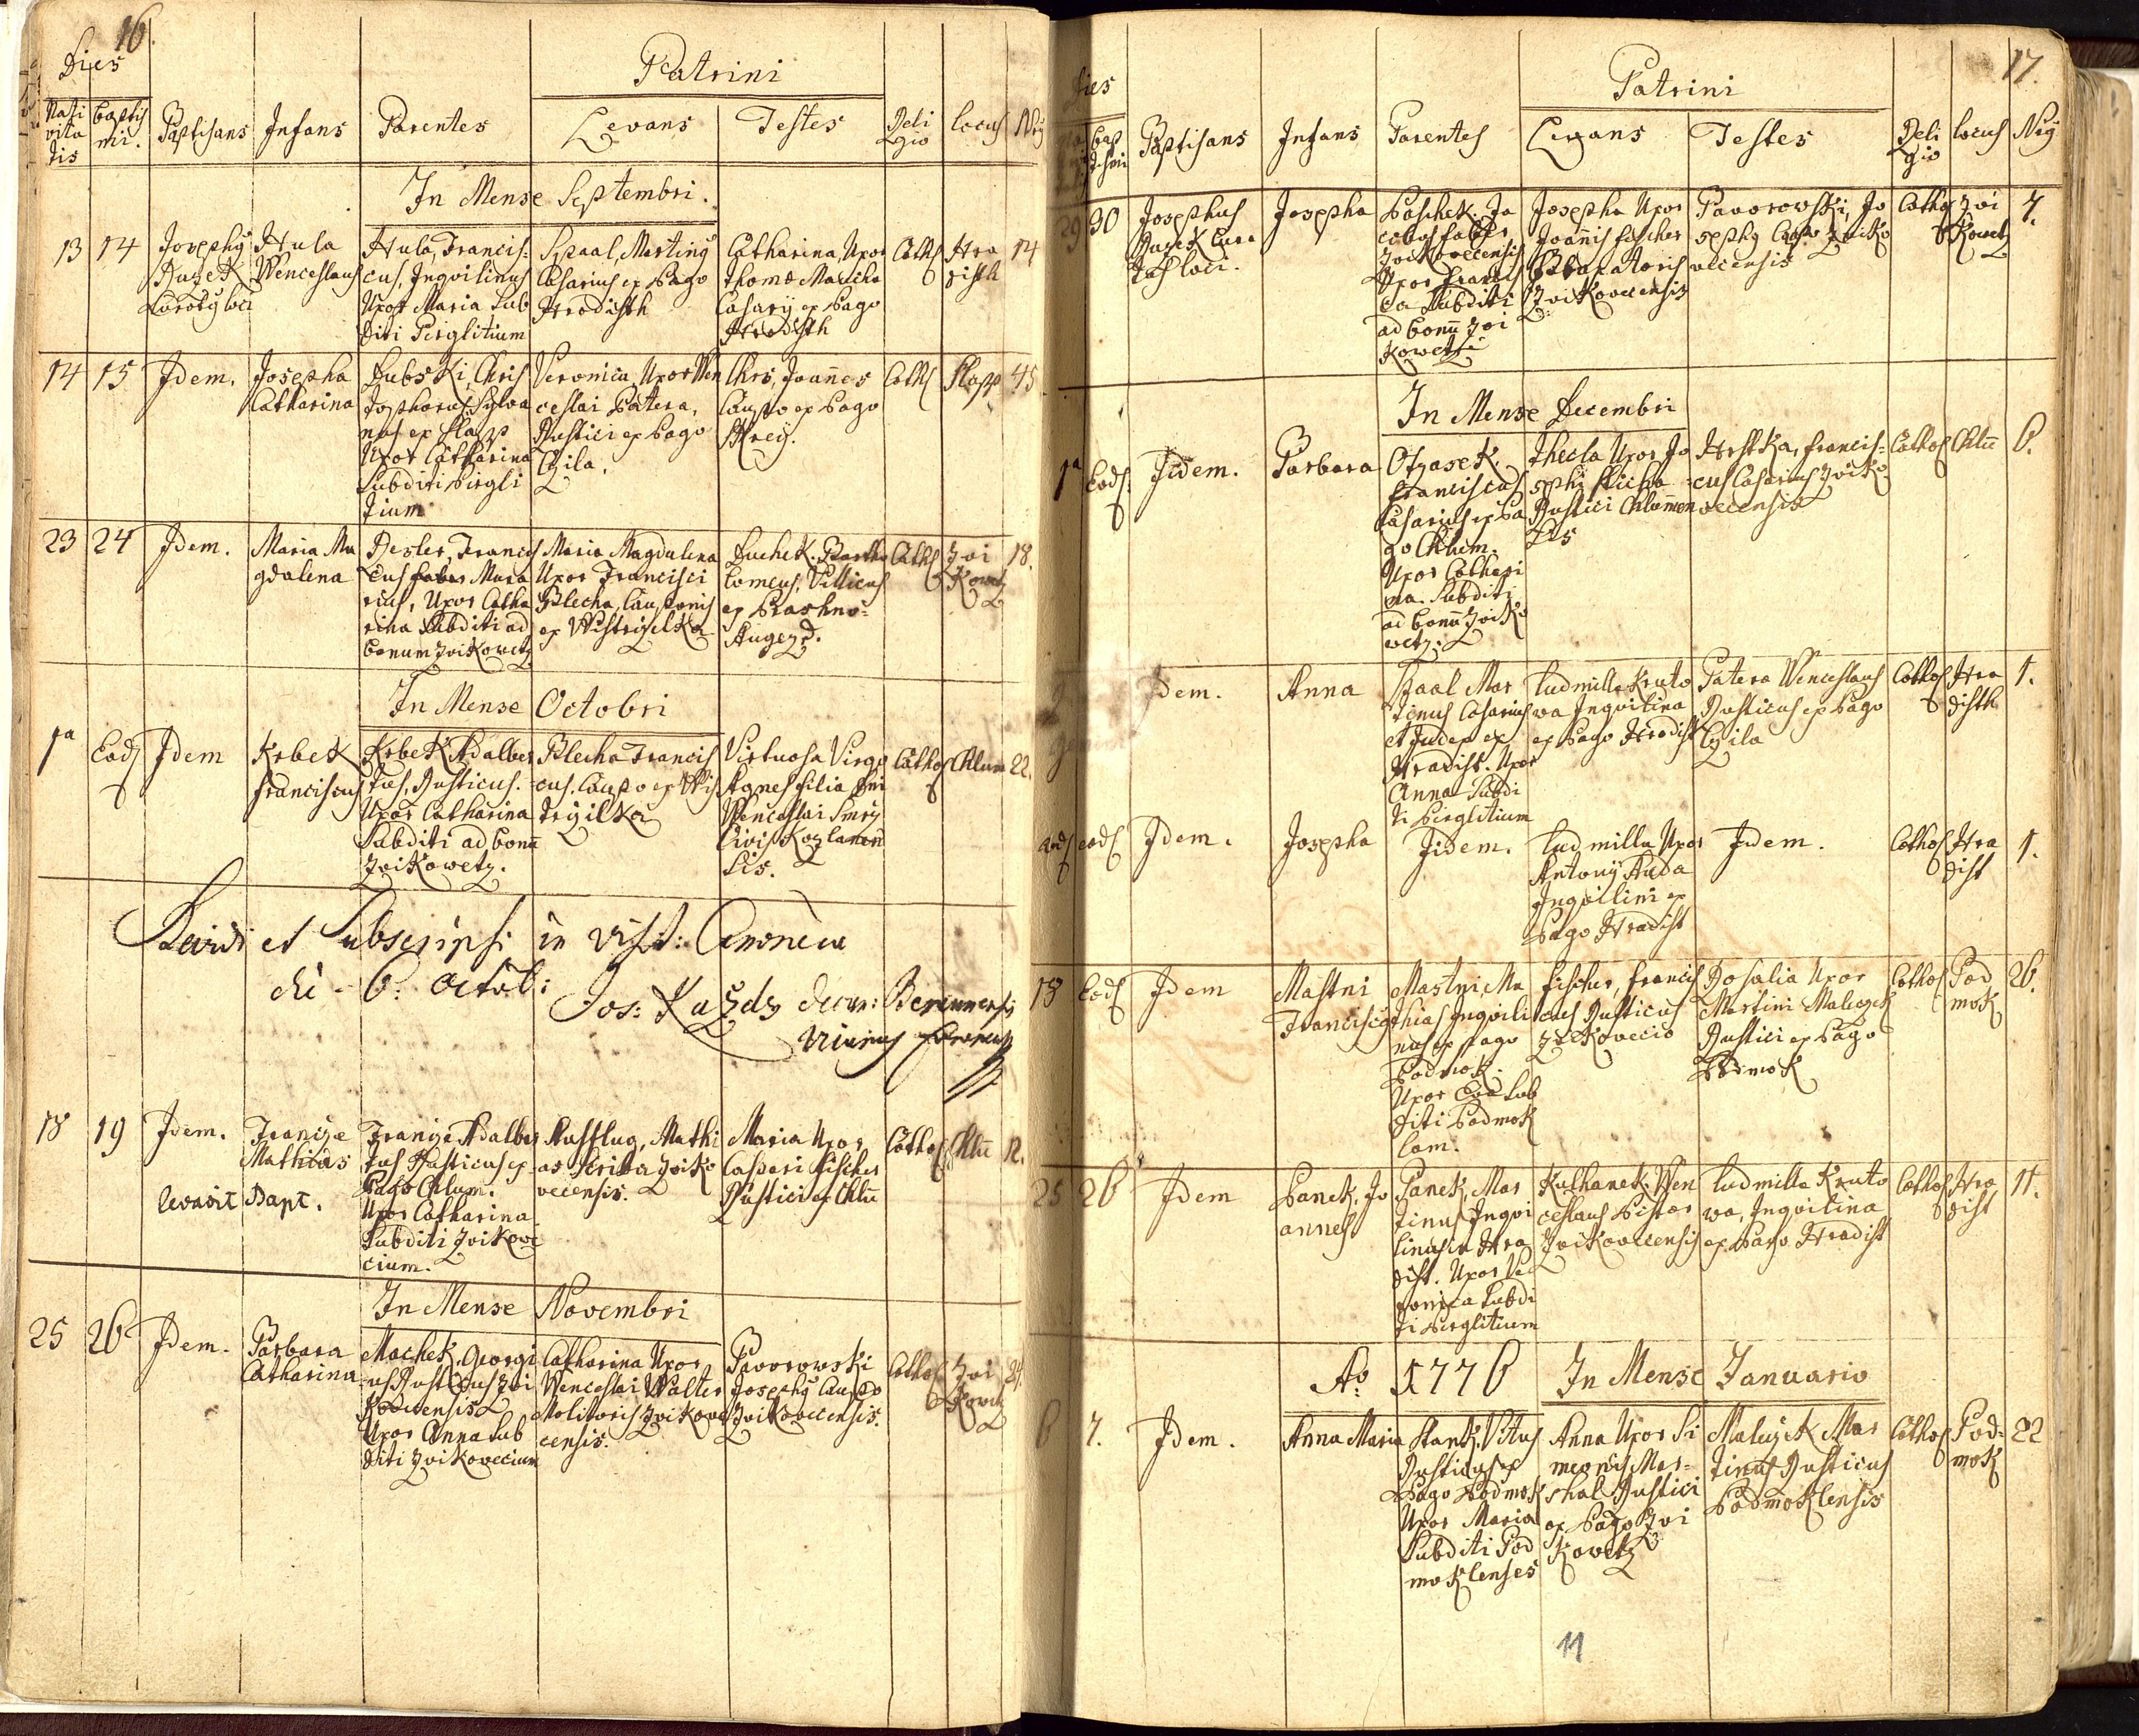 16.
Dies
Patrini
Nati
vita
tis
Baptis
mi.
Baptisans
Infans
Parentes
Levans
Testes
Reli
gio
locus
In Mense Septembri.
13
14
Josephg
Ruzek
Curatg loci
Hula
Wenceslaus
Hula, Francis=
cus, Inqvilinus
Uxor Maria Sub
diti Pirglitium
Spaal, Marting
Casarius ex Pago
Hradisth
Catharina, Uxor
Thomæ Maucha
Casarÿ ex Pago
Hradisth
Cath
Hra
disth
14
14
15
Idem.
Josepha
Catharina
Lubski, Chris
tophorus, Sylva
nus ex Slapp
Uxor Catharina
Subditi Pirgli
tium
Veronica, Uxor Wen
ceslai Patera,
Rustici ex Pago
Czila.
Chrs, Joannes
Caupo ex Pago
Skrey.
Cath
Slapp
45
23
24
Idem.
Maria Ma
gdalena
Resler, Francis
cus faber Mura
rius, Uxor Catha
rina Subditi ad
bonum Zvikowetz
Maria Magdalena
Uxor Francisci
Blecha, Cauponis
ex Wistrzilka
Luchek. Bartho
lomeus, Villicus
ex Prashno=
Augezd.
Cath
Zvi
Kowetz
18.
In Mense Octobri
1a
Eod
Idem
Krbek
Franciscus
Krbek Adalber
tus, Rusticus.
Uxor Catharina
Subditi ad bonu
Zvikowetz.
Blecha Francis
cus, Caupo ex Wis
trzilka
Virtuosa Virgo
Agnes filia Dni
Wenceslai Smrz
Civis Kozlanen
sis.
Cathol
Chlum
22.
Revidi et Subscripsi in visit: Canonica
die 6: Octob:
Jos: Kazda decan: Beraunensis
Vicarius Foraneus
18
19
Idem.
Franize
Mathias
Levavit Bapt.
Franize Adalber
tus Rusticus ex
Pago Chlum.
Uxor Catharina
Subditi Zvikowe
cium.
Aufflug, Mathi
as Scriba Zviko
vecensis.
Maria Uxor
Caspari Fischer
Rustici ex Chlu
Cathol
Chlu
12.
In Mense Novembri
25
26
Idem.
Barbara
Catharina
Machek, Georgi
us Rusticus Zvi
Kovecensis
Uxor Anna Sub
diti Zvikovecium
Catharina Uxor
Wenceslai Walter
Molitoris Zvikove
censis.
Pavorowski
Josephg Caupo
Zvikovecensis.
Cathol
Zvi
Kovetz
17.
Dies
Patrini
Baptisans
Infans
Parentes
Levans
Testes
Reli
gio
locus
Nrg
29
30
Josephus
Ruzek Cura
tus loci.
Josepha
Paschek. Ja
cobus faber
Zvikovecensis
Uxor Francis
ca Subditi
ad bonu Zvi
Kowetz
Josepha Uxor
Joannis Fischer
Zvikovecensis
Pavorowski, Jo
sephg Caupo Zviko
vecensis
Cathol
Zvi
Kowetz
7.
In Mense Decembri
1a
Eod
Idem.
Barbara
Otzasek
Franciscus
Casarius ex Pa
go Chlum.
Uxor Cathari
na. Subditi
ad bonu Zviko
wetz.
Thecla Uxor Jo
sephi Plicha
Rustici Chlumen
sis
Hrstka, Francis=
cus Casarius Zviko
vecensis
Cathol
Chlu
6.
Idem.
Anna
Spaal Mar
tinus Casarius
et Judex ex
Hradist. Uxor
Anna Subdi
ti Pirglitium
Ludmilla Kruto
wa Inqvilina
ex Pago Hradist
Patera Wenceslaus
Rusticus ex Pago
Czila
Cathol
Hra
disth
1.
eod
eod
Idem.
Josepha
Iidem.
Ludmilla Uxor
Antonÿ Ruda
Inqvilini ex
Pago Hradist
Idem.
Cathol
Hra
dist
1.
18
Eod
Idem
Mastni
Franciscg
Mastni, Ma
thias Inqvili
nus ex Pago
Podmok.
Uxor Eva Sub
diti Podmok
lam.
Fischer, Francis
cus Rusticus
Zvikovecio
Rosalia Uxor
Martini Maluzek
Rustici ex Pago
Podmok
Cathol
Pod
mok
26.
25
26
Idem
Panek, Jo
annes
Panek, Mar
tinus Inqvi
linus in Hra
dist. Uxor Ve
ronica Subdi
ti Pirglitium
Kulhanek. Wen
ceslaus Pistor
Zvikovecensis
Ludmilla Kruto
wa, Inqvilina
ex Pago Hradist
Cathol
Hra
dist
11.
Ao 1776 In Mense Januario
6
7.
Idem.
Anna Maria
Stank, Vitus
Rusticus ex
Pago Podmok
Uxor Maria
Subditi Pod
moklenses
Anna Uxor Si
meonis Mar=
shal Rustici
ex Pago Zvi
Kovetz
Maluzek Mar
tinus Rusticus
Podmoklensis
Cathol
Pod=
mok
22
11